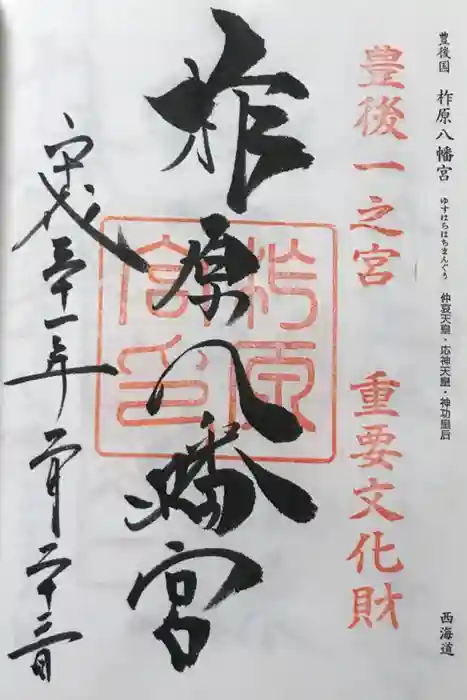 豊後国 柞原八幡宮 ゆすはらはちまんぐう 仲哀天皇・応神天皇・神功皇后 西海道
豊後一之宮 重要文化財
柞原八幡宮
平成三十一年二月二十三日